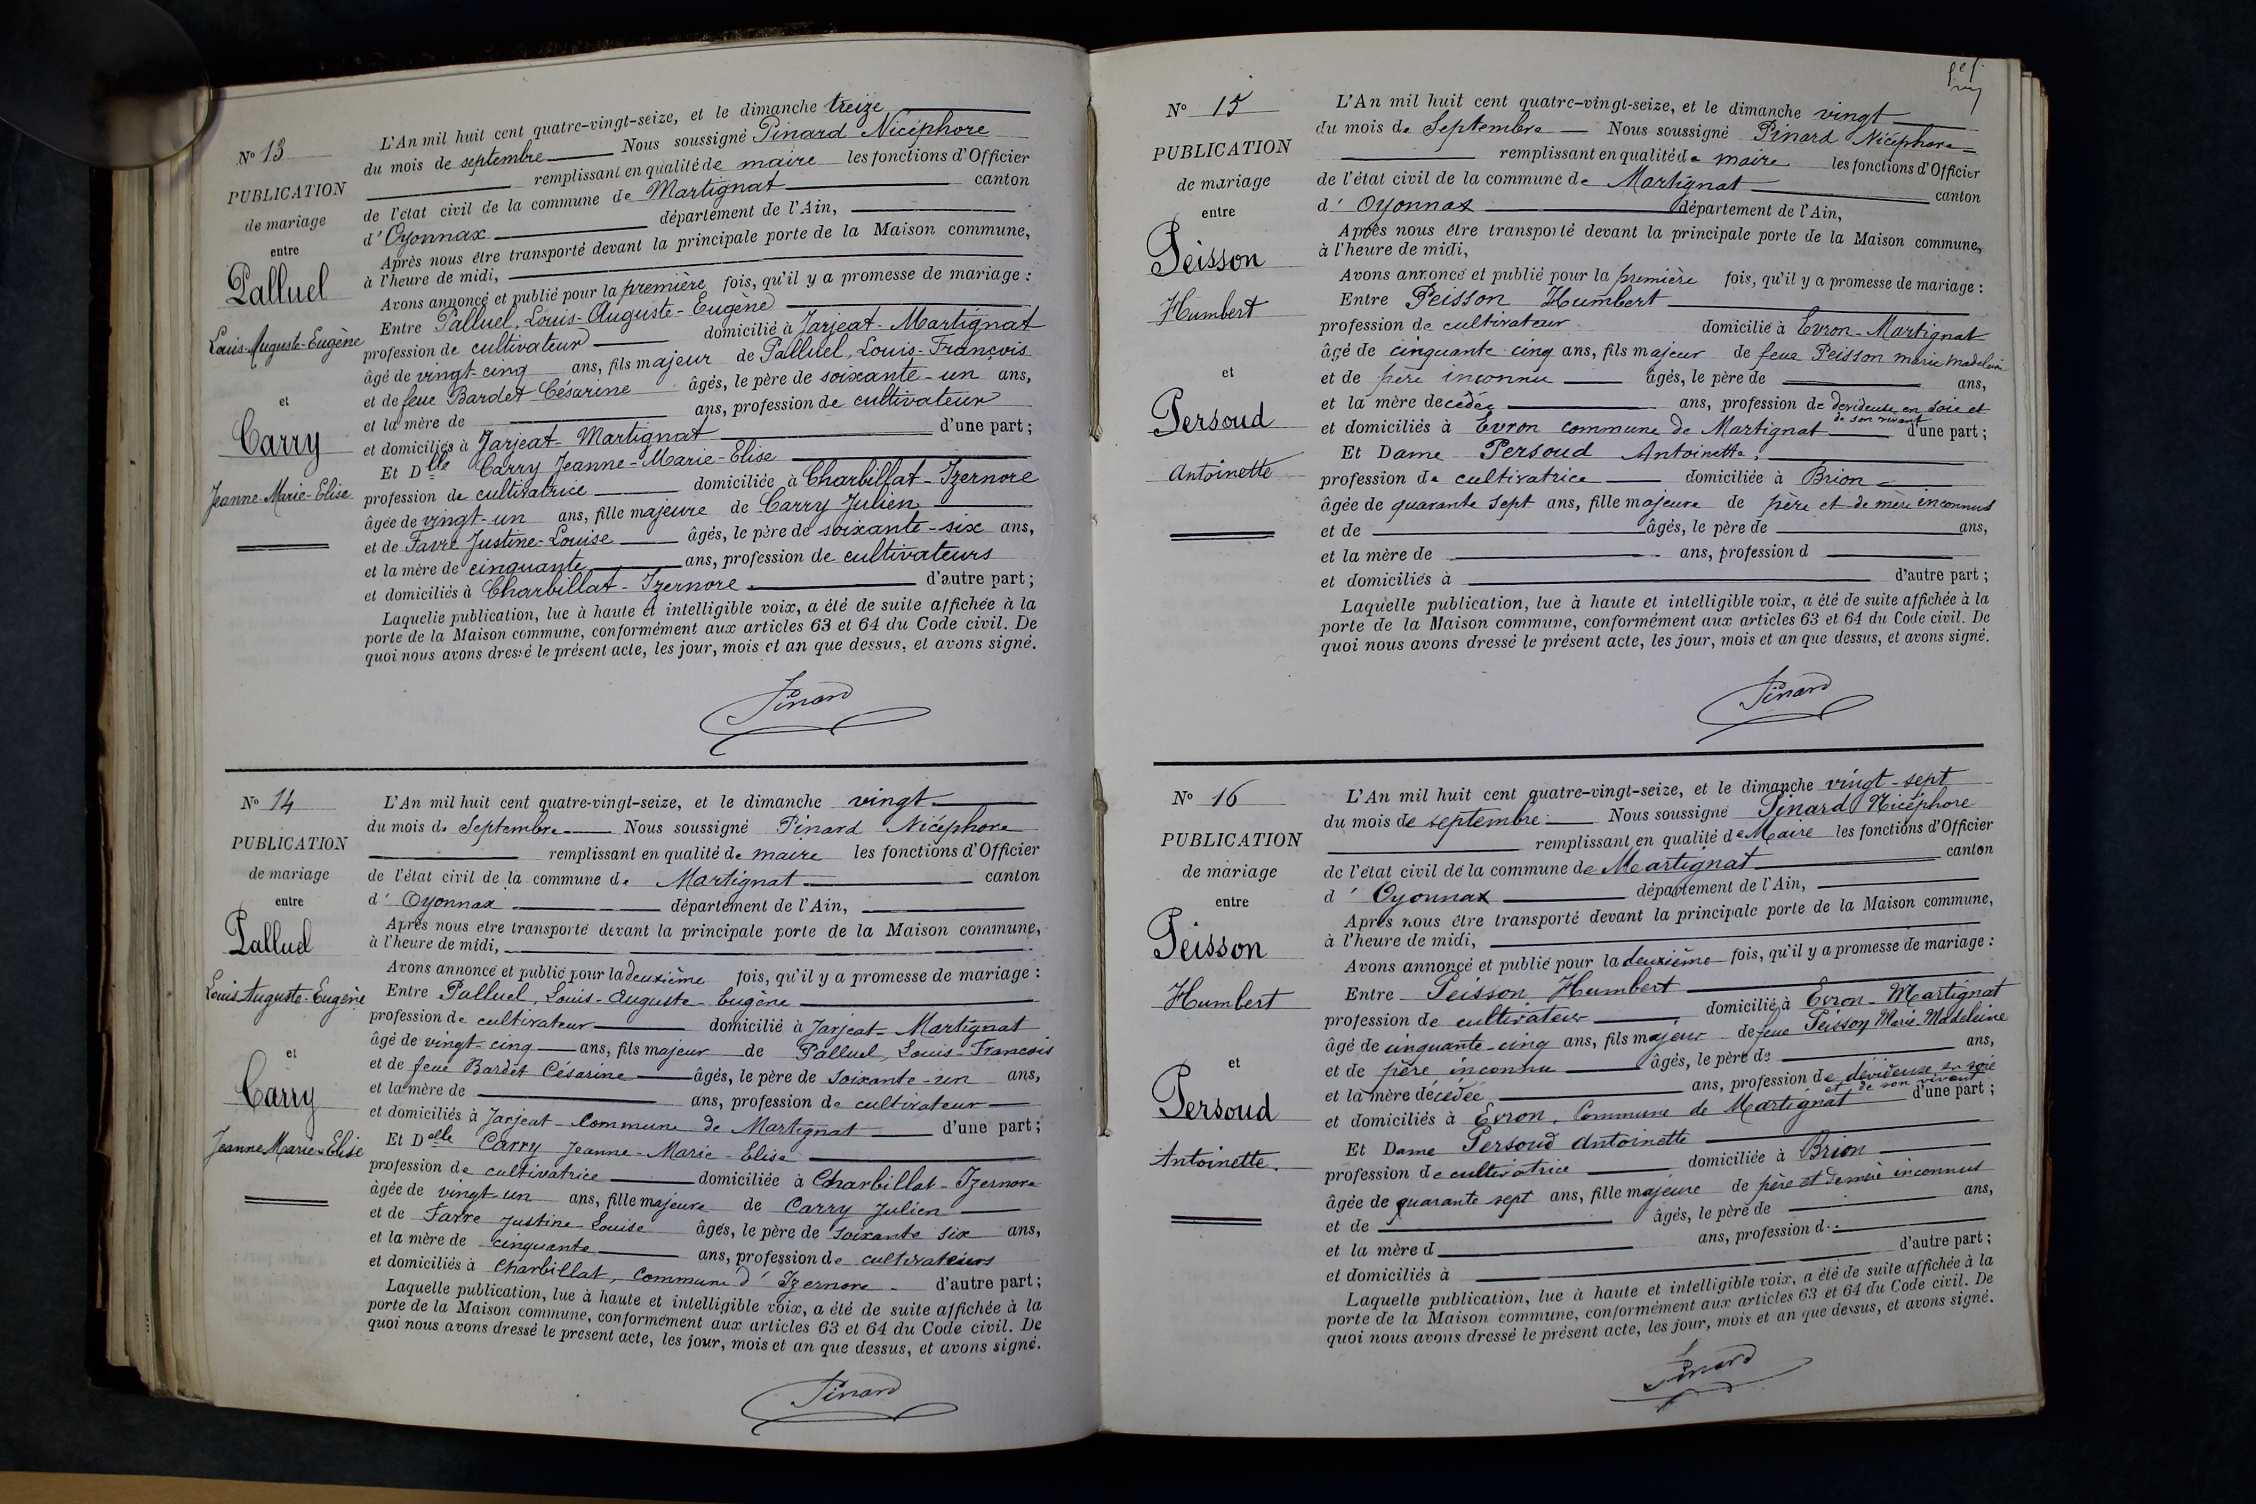 N° 13
PUBLICATION
de mariage
entre
Palluel
Louis-Auguste-Eugène
et
Carry
Jeanne-Marie-Elise
L'An mil huit cent quatre-vingt-seize, et le dimanche treize
du mois de septembre Nous soussigné Pinard Nicéphore
remplissant en qualité de maire les fonctions d'Officier
de l'état civil de la commune de Martignat canton
d'Oyonnax département de l'Ain,
Après nous être transporté devant la principale porte de la Maison commune,
à l'heure de midi,
Avons annoncé et publié pour la première fois, qu'il y a promesse de mariage :
Entre Palluel, Louis-Auguste-Eugène
profession de cultivateur domicilié à Jarjeat-Martignat
âgé de vingt-cinq ans, fils majeur de Palluel, Louis-François
et de feue Bardet Césarine âgés, le père de soixante-un ans,
et la mère de ans, profession de cultivateur
et domiciliés à Jarjeat-Martignat d'une part ;
Et Dlle Carry Jeanne-Marie-Elise
profession de cultivatrice domiciliée à Charbillat-Izernore
âgée de vingt-un ans, fille majeure de Carry Julien
et de Favre Justine-Louise âgés, le père de soixante-six ans,
et la mère de cinquante ans, profession de cultivateurs
et domiciliés à Charbillat-Izernore d'autre part ;
Laquelle publication, lue à haute et intelligible voix, a été de suite affichée à la
porte de la Maison commune, conformément aux articles 63 et 64 du Code civil. De
quoi nous avons dressé le présent acte, les jour, mois et an que dessus, et avons signé.
Pinard
N° 14
PUBLICATION
de mariage
entre
Palluel
Louis Auguste-Eugène
et
Carry
Jeanne Marie Elise
L'An mil huit cent quatre-vingt-seize, et le dimanche vingt
du mois de Septembre Nous soussigné Pinard Nicéphore
remplissant en qualité de maire les fonctions d'Officier
de l'état civil de la commune de Martignat canton
d'Oyonnax département de l'Ain,
Après nous être transporté devant la principale porte de la Maison commune,
à l'heure de midi,
Avons annoncé et publié pour la deuxième fois, qu'il y a promesse de mariage :
Entre Palluel, Louis-Auguste-Eugène
profession de cultivateur domicilié à Jarjeat-Martignat
âgé de vingt-cinq ans, fils majeur de Palluel, Louis-François
et de feue Bardet Césarine âgés, le père de soixante-un ans,
et la mère de ans, profession de cultivateur
et domiciliés à Jarjeat-Commune de Martignat d'une part ;
Et Delle Carry Jeanne-Marie-Elise
profession de cultivatrice domiciliée à Charbillat-Izernore
âgée de vingt-un ans, fille majeure de Carry Julien
et de Favre Justine Louise âgés, le père de soixante six ans,
et la mère de cinquante ans, profession de cultivateurs
et domiciliés à Charbillat, Commune d'Izernore d'autre part ;
Laquelle publication, lue à haute et intelligible voix, a été de suite affichée à la
porte de la Maison commune, conformément aux articles 63 et 64 du Code civil. De
quoi nous avons dressé le présent acte, les jour, mois et an que dessus, et avons signé.
Pinard
N° 15
PUBLICATION
de mariage
entre
Peisson
Humbert
et
Persoud
Antoinette
L'An mil huit cent quatre-vingt-seize, et le dimanche vingt
du mois de Septembre Nous soussigné Pinard Nicéphore
remplissant en qualité de maire les fonctions d'Officier
de l'état civil de la commune de Martignat canton
d'Oyonnax département de l'Ain,
Après nous être transporté devant la principale porte de la Maison commune,
à l'heure de midi,
Avons annoncé et publié pour la première fois, qu'il y a promesse de mariage :
Entre Peisson Humbert
profession de cultivateur domicilié à Evron-Martignat
âgé de cinquante-cinq ans, fils majeur de feue Peisson marie madeleine
et de père inconnu âgés, le père de ans,
et la mère decédée ans, profession de devideuse en soie et
de son vivant
et domiciliés à Evron commune de Martignat d'une part ;
Et Dame Persoud Antoinette,
profession de cultivatrice domiciliée à Brion
âgée de quarante sept ans, fille majeure de père et de mère inconnus
et de âgés, le père de ans,
et la mère de ans, profession d
et domiciliés à d'autre part ;
Laquelle publication, lue à haute et intelligible voix, a été de suite affichée à la
porte de la Maison commune, conformément aux articles 63 et 64 du Code civil. De
quoi nous avons dressé le présent acte, les jour, mois et an que dessus, et avons signé.
Pinard
N° 16
PUBLICATION
de mariage
entre
Peisson
Humbert
et
Persoud
Antoinette.
L'An mil huit cent quatre-vingt-seize, et le dimanche vingt-sept
du mois de septembre Nous soussigné Pinard Nicéphore
remplissant en qualité de Maire les fonctions d'Officier
de l'état civil de la commune de Martignat canton
d'Oyonnax département de l'Ain,
Après nous être transporté devant la principale porte de la Maison commune,
à l'heure de midi,
Avons annoncé et publié pour la deuxième fois, qu'il y a promesse de mariage :
Entre Peisson Humbert
profession de cultivateur domicilié à Evron-Martignat
âgé de cinquante-cinq ans, fils majeur de feue Peisson Marie Madeleine
et de père inconnu âgés, le père de ans,
et la mère décédée ans, profession de dévideuse en soie
et de son vivant
et domiciliés à Evron, Commune de Martignat d'une part ;
Et Dame Persoud Antoinette
profession de cultivatrice domiciliée à Brion
âgée de quarante sept ans, fille majeure de père et de mère inconnus
et de âgés, le père de ans,
et la mère d ans, profession d
et domiciliés à d'autre part ;
Laquelle publication, lue à haute et intelligible voix, a été de suite affichée à la
porte de la Maison commune, conformément aux articles 63 et 64 du Code civil. De
quoi nous avons dressé le présent acte, les jour, mois et an que dessus, et avons signé.
Pinard